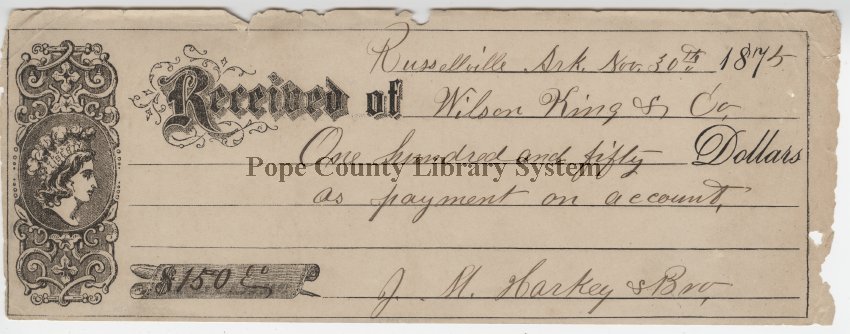 Russellville Ark. Nov. 30th 1875
Received of Wilson King & Co,
One hundred and fifty Dollars
Pope County Library System
as payment on account,
$150
J. M. Harkey & Bro,